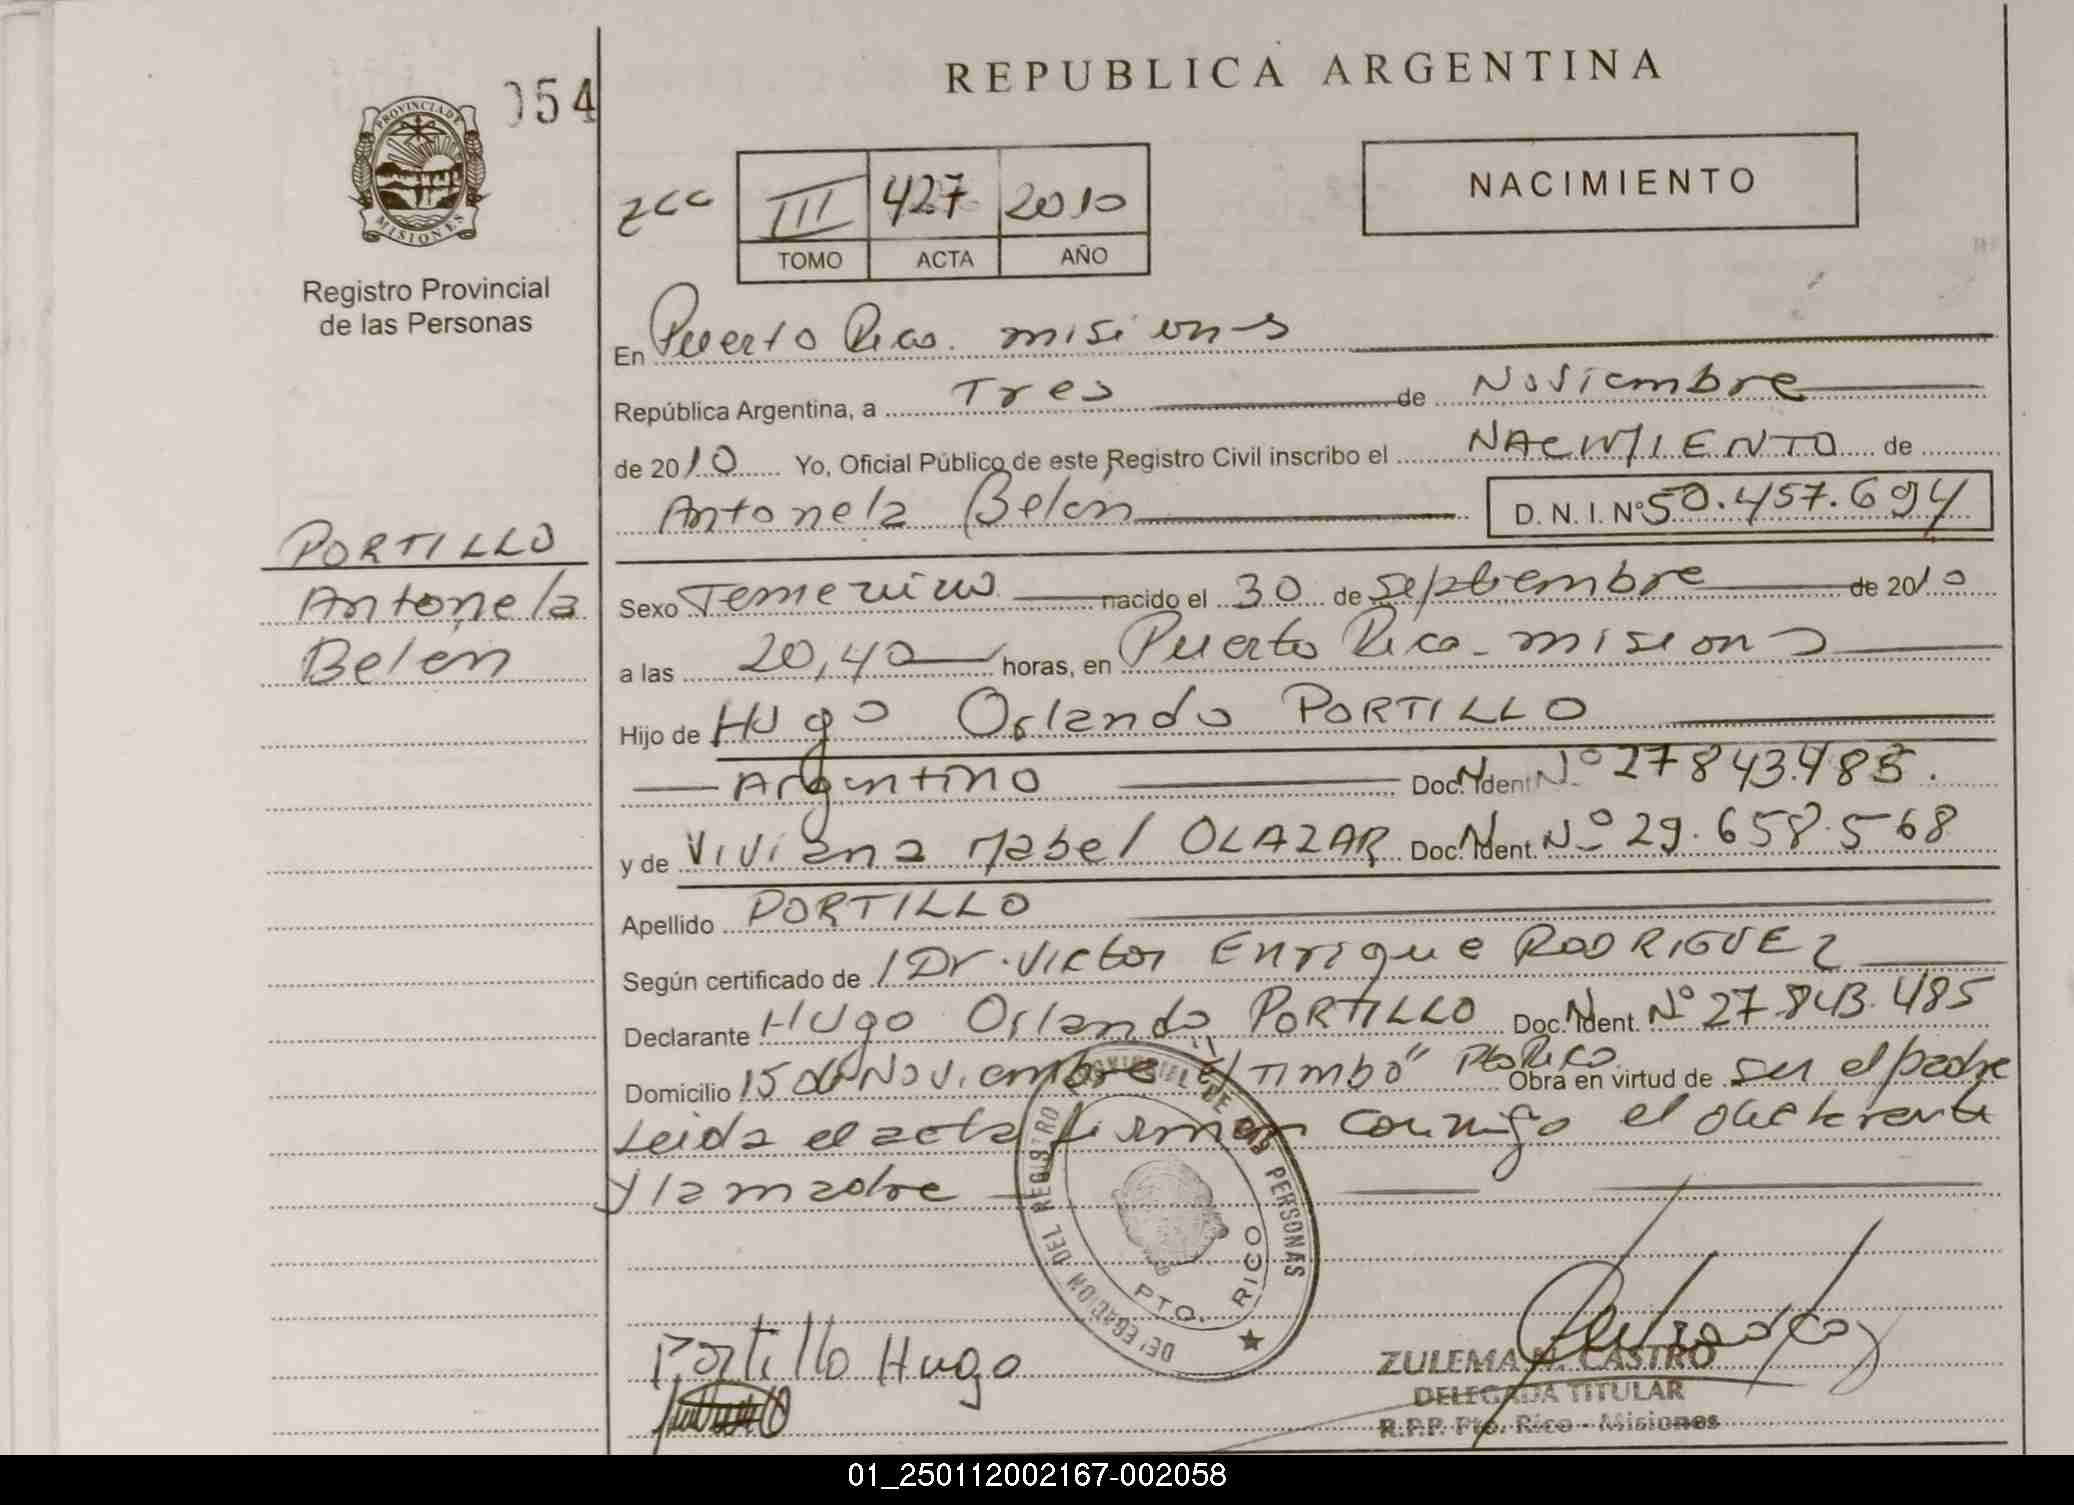 REPUBLICA ARGENTINA
054
PROVINCIA DE MISIONES
Registro Provincial
de las Personas
III 427 2010
TOMO ACTA AÑO
NACIMIENTO
En Puerto Rico. misiones
República Argentina, a Tres de Noviembre
de 2010 Yo, Oficial Público de este Registro Civil inscribo el NACIMIENTO de
Antonela Belen D.N.I. Nº 50.457.694
PORTILLO
Antonela
Belén
Sexo Femenino nacido el 30 de Septiembre de 2010
a las 20,40 horas, en Puerto Rico - misiones
Hijo de Hugo Orlando PORTILLO
Argentino Doc. Ident. Nº 27843.485.
y de Viviana Mabel OLAZAR Doc. Ident. Nº 29.658.568
Apellido PORTILLO
Según certificado de / Dr. Victor Enrique RODRIGUEZ
Declarante Hugo Orlando PORTILLO Doc. Ident. Nº 27.843.485
Domicilio 15 de Noviembre "TIMBO" Pto Rico Obra en virtud de ser el padre
Leida el acta firman conmigo el declarante
y la madre
DELEGACION DEL REGISTRO PROVINCIAL DE LAS PERSONAS
PTO. RICO
Portillo Hugo
ZULEMA N. CASTRO
DELEGADA TITULAR
R.P.P. Pto. Rico - Misiones
01_250112002167-002058